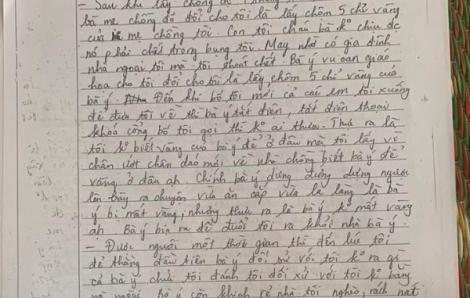 - Sau khi lấy chồng
bà mẹ chồng đổ cho tôi là lấy chôm 5 chỉ vàng
của mẹ chồng tôi. Con tôi cháu bà k° chịu đc
nó phải chết trong bụng tôi. May nhờ có gia đình
nhà ngoại tôi mà tôi thoát chết. Bà ý vu oan giáo
họa cho tôi đổ cho tôi là lấy chôm 5 chỉ vàng của
bà ý. Đến khi bố tôi mới cả các em tôi xuống
để đưa tôi về thì bà ý tắt điện, tắt điện thoại
khoá cổng bố tôi gọi thì k° ai thưa. Thưa ra là
tôi k° biết vàng của bà ý để ở đâu mới tôi lấy vì
chân ướt chân dáo mới về nhà chồng biết bà ý để
vàng ở đâu ạh. Chính bà ý dựng đứng dựng ngược
lên bày ra chuyện vừa ăn cắp vừa la làng là bà
ý bị mất vàng, nhưng thực ra là bà ý k° mất vàng
ạh. Bà ý bịa ra để đuổi tôi ra khỏi nhà bà ý.
- Được người một thời gian thì đến lúc tôi
đẻ thằng đầu tiên bà đối xử với tôi k° ra gì
cả bà ý chửi tôi đánh tôi đối xử với tôi k° bằng
bà ý còn khinh rẻ nhà tôi nghèo, rách nát